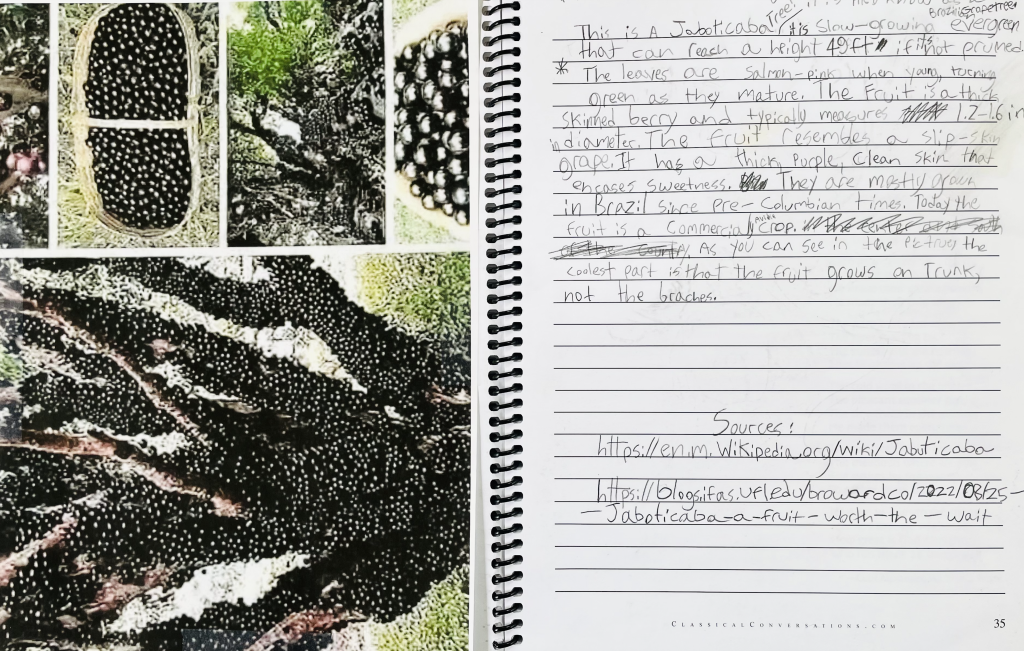 it is
Brazilian grapetree
This is A Jaboticaba Tree! it is Slow-growing evergreen
that can reach a height 49ft if it's not pruned.
* The leaves are Salmon-pink when young, turning
green as they mature. The Fruit is a thick
skinned berry and typically measures 1.2-1.6 in
in diameter. The fruit resembles a slip-skin
grape. It has a thick, purple, Clean skin that
encases sweetness. They are mostly grown
in Brazil since pre-Columbian times. Today the
fruit is a Commercial crop.
As you can see in the the
coolest part is that the fruit grows on Trunk,
not the braches.
Sources:
https://en.m.Wikipedia.org/wiki/Jabuticaba
https://blogs.ifas.ufl.edu/browardco/2022/08/25-
-Jaboticaba-a-fruit-worth-the-wait
ClassicalConversations.com
35